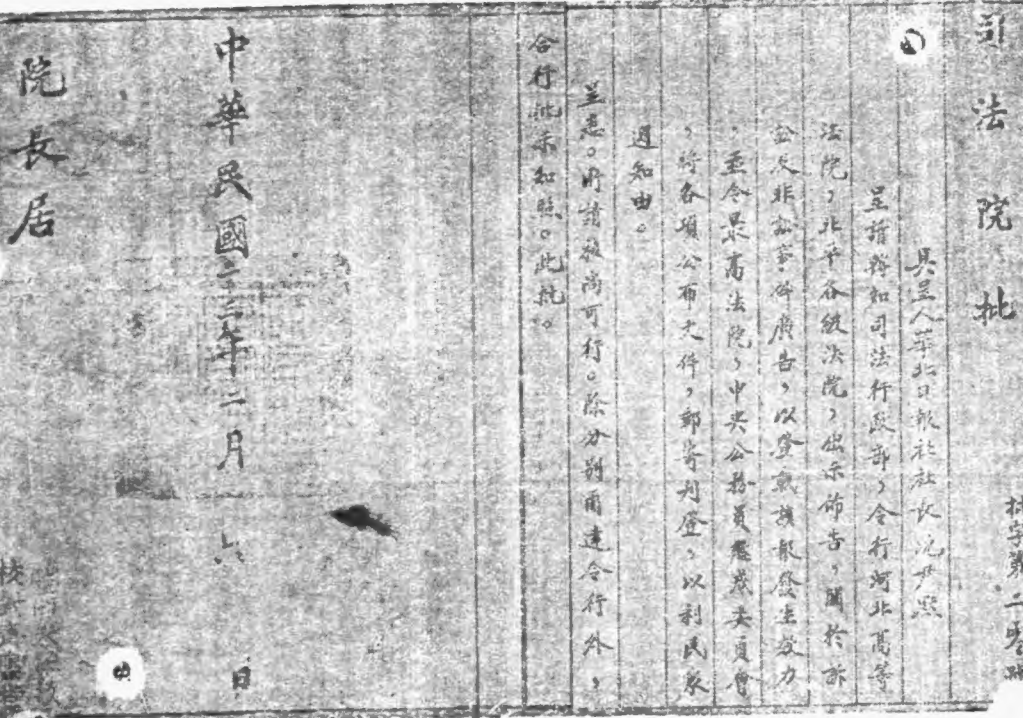 司法院批
批字第二
具呈人華北日報社社長沈尹默
呈請轉知司法行政部，令行河北高等
法院，北平各級法院，出示佈告，關於訴
訟及非訟案件廣告，以登載該報發生效力
，並令最高法院，中央公務員懲戒委員會
，將各項公布文件，郵寄刊登，以利民衆
週知由。
呈悉。所請核尚可行。除分別函達令行外，
合行批示知照。此批。
中華民國二三年二月六日
院長居